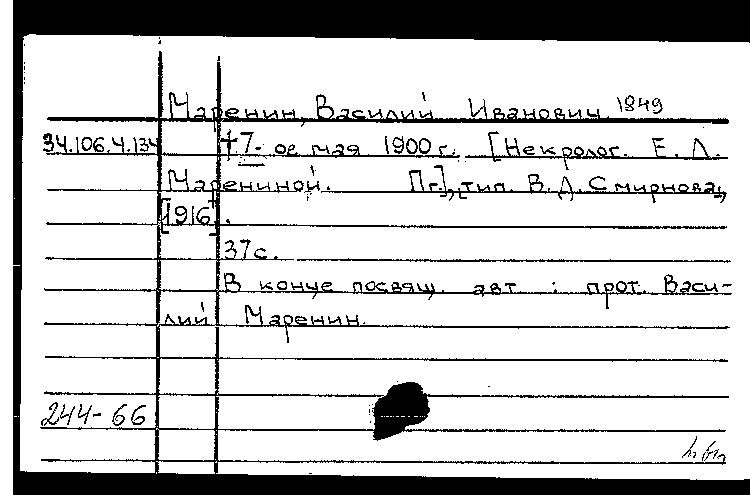 Маренин, Василий Иванович 1849
34.106.4.134 †7-ое мая 1900 г. [Некролог. Е. Л.
Марениной. Пг.], тип. В. Д. Смирнова,
[1916].
37с.
В конце посвящ. авт : прот. Васи-
лий Маренин.
244-66